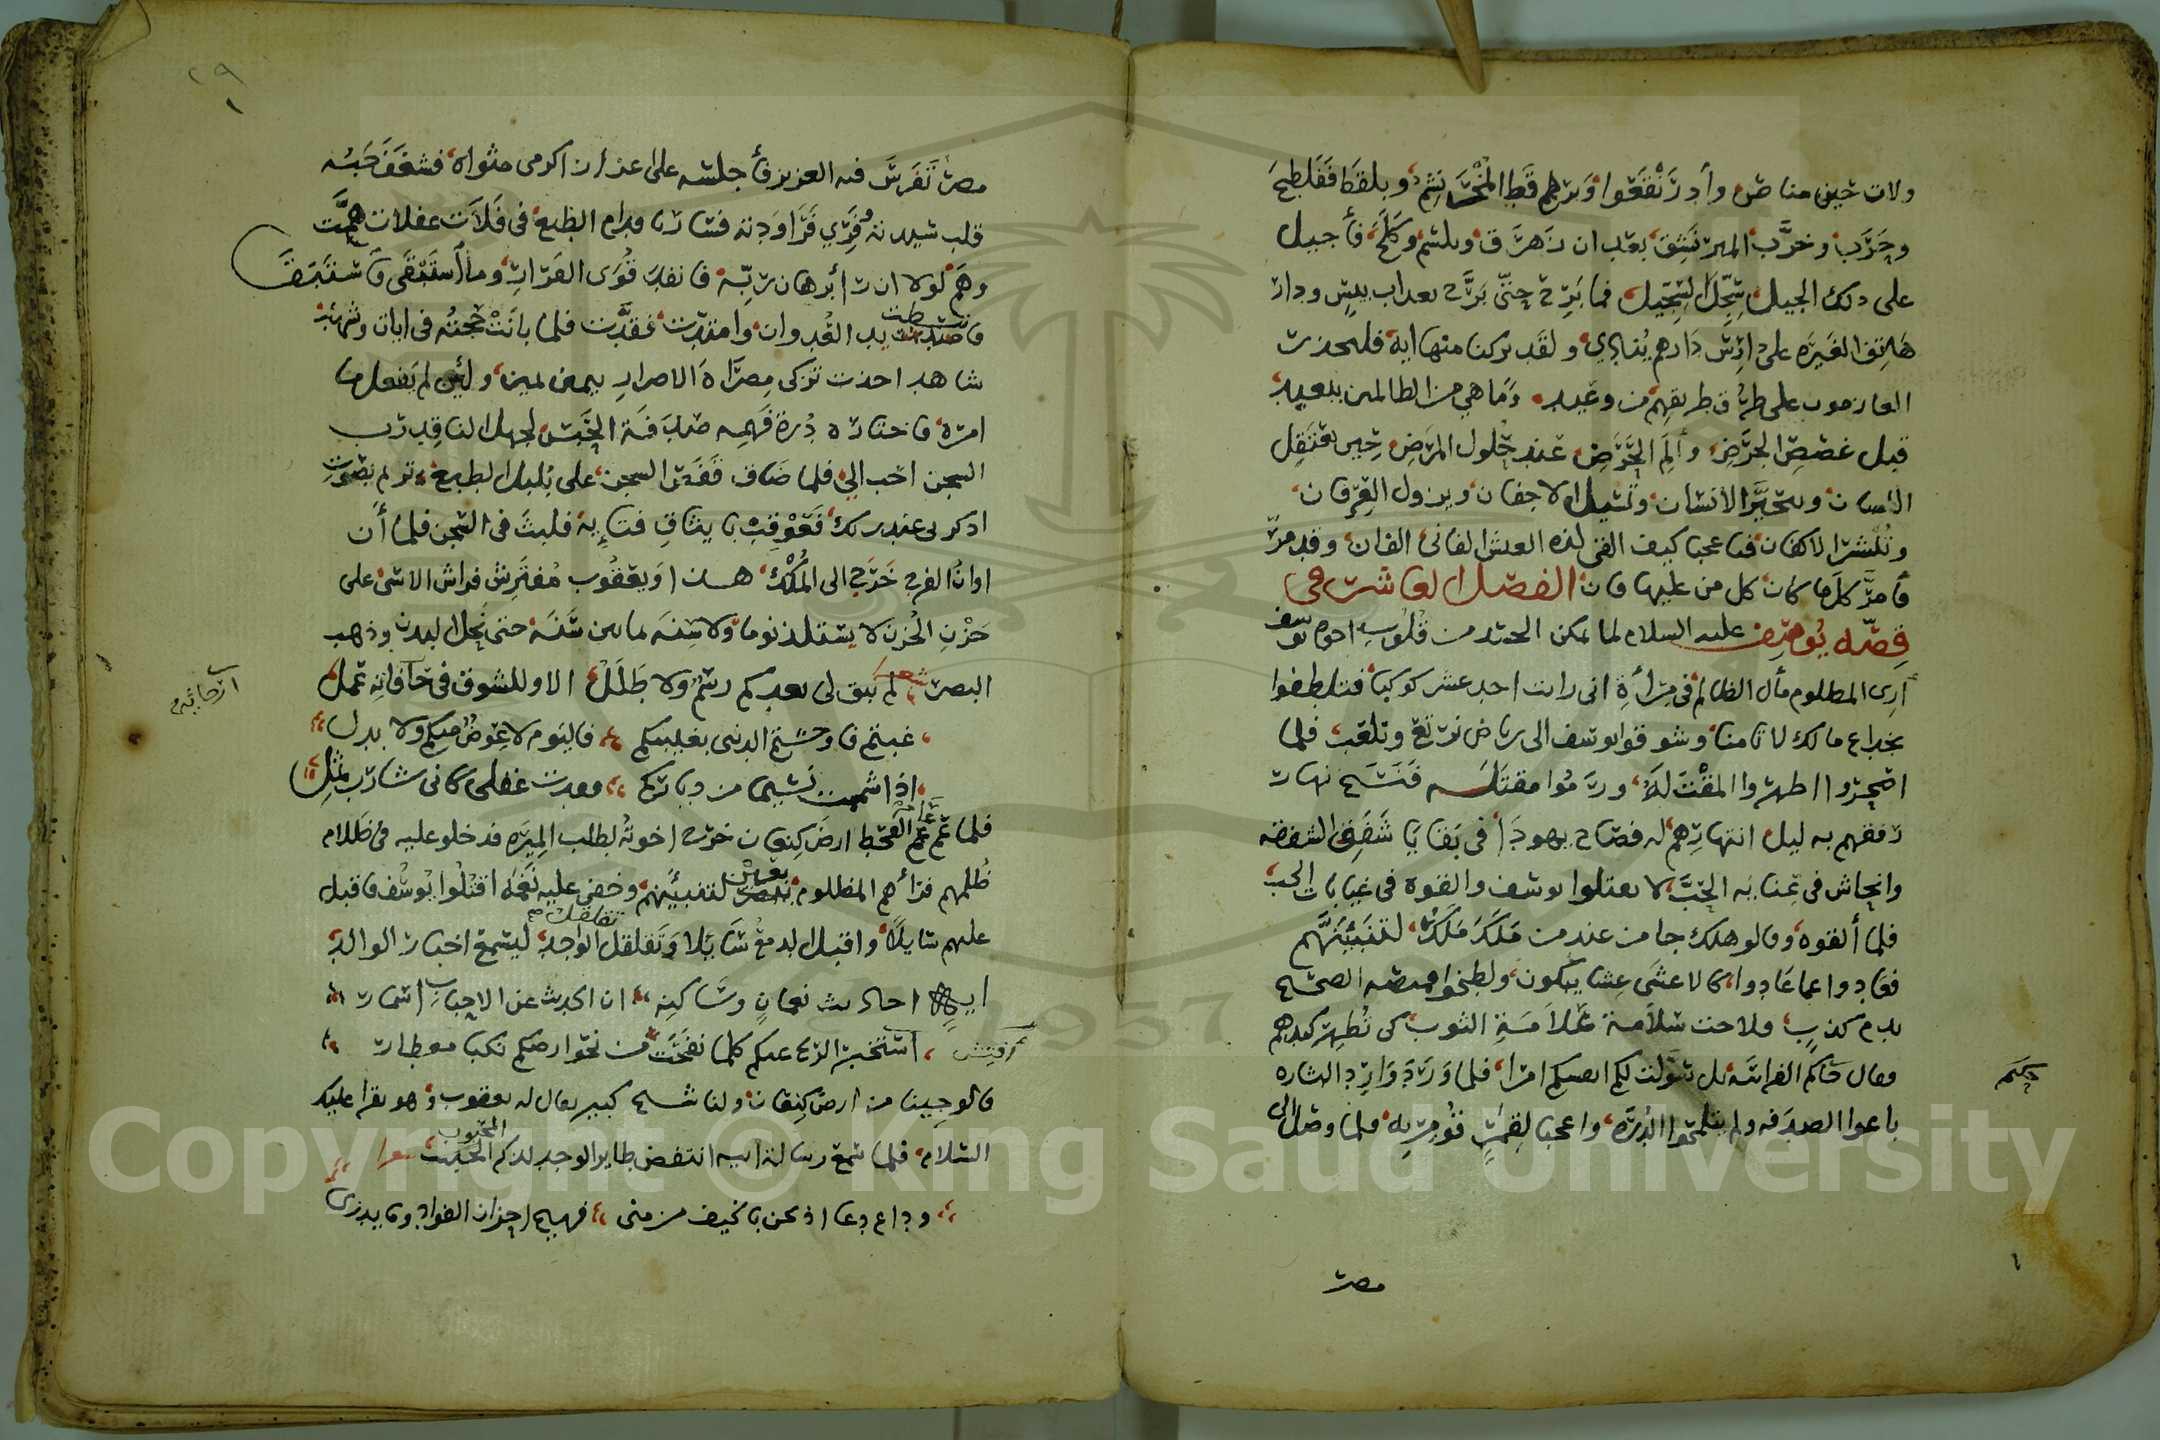 ولات حين مناص وأدرنقعوا وبرهم قط المخرنثم وبلقط ففلطح
وحزب وخرب المبرنشق بعد ان زهزق وبلسم وكلح فأجيل
على ذلك الجيل سجل السجيل فما برح حتى برح بعداب بيس ودار
هاتف العبره على دارس دارهم ينادي ولقد تركنا منها اية فليحذر
العازمون على طرق طريقهم من وعيد وما هي من الظالمين ببعيد
قبل غصص الجرض وألم الحرض عند حلول المرض حين يعتقل
اللسان ويتحير الانسان وتسيل الاجفان ويزول العرفان
وتنشر الاكفان فيا عجبا كيف الفى لذه العيش الفانى الفان وقد مر
فأمر كلما كان كل من عليها فان الفصل العاشر فى
قصه يوسف عليه السلام لما تمكن الحسد من قلوب اخوة يوسف
ارى المظلوم مأل الظالم فى مرأة انى رايت احد عشر كوكبا فتلطفوا
بخداع مالك لا تامنا وشوقوا يوسف الى رياض نرتع ونلعب فلما
اصحروا اظهروا المقت له ورموا مقتله فنسخ نهار
رفقهم به ليل انتهارهم له فصاح يهودا فى بقايا شفق الشفقه
وانجاش فى غيابه الجب لا تقتلوا يوسف والقوه فى غيابات الجب
فلما ألقوه وقالو هلك جا من عند من ملكه ملكه لتنبئنهم
فعادوا عما عادوا كالاعشى عشا يبكون ولطخوا قميصه الصحيح
بدم كذب ولاحت سلامة علامة الثوب كى تظهر كيدهم
وقال حاكم الفراسه بل سولت لكم انفسكم امرا فلما ورد وارد السياره
باعوا الصدفه ولم يتلمحوا الدره واعجبا لقمر قومر به فلما وصل الى
حكم
مصر
٢٩
مصر تفرس فيه العزيز فأجلسه على عز ان اكرمى مثواه فشغف حبه
قلب سيدته ففري فراودته فسار بأقدام الطبع فى فلات غفلات همت
وهم لولا ان رأ برهان ربه فانقد قوى الفرار وما أستبقى فاستبقا
فانبسطت يد العدوان وامتدت فقدت فلما بانت حجته فى ابان وشهد
شاهد اخذت تزكى مصراة الاصرار بيمين لمين ولئن لم يفعل ما
امره فاختاره درة فهمه صدفة الحبس لجهل الناقد رب
السجن احب الي فلما ضاق قفص السجن على بلبل الطبع ترنم بصوت
اذكرنى عند ربك فعوقب بايثاق فتايه فلبث فى السجن فلما أن
اوان الفرج خرج الى الملك هذا ويعقوب مفترش فراش الاسى على
حزن الحزن لا يستلذ نوما ولا سنه ثمانين سنه حتى نحل البدن وذهب
البصر شعر لم يبق لى بعدكم رسم ولا طلل الا وللشوق فى حافاته عمل
غبتم فاوحشتم الدنى بغيبتكم فاليوم لا عوض منكم ولا بدل
اذا شممت نسيما من دياركم فقدت عقلى كانى شارب ثمل
ارجائه
فلما عم عام القحط ارض كنعان خرج اخوته لطلب الميره فدخلو عليه فى ظلام
ظلمهم فرأهم المظلوم بعين لتنبئنهم وخفى عليه نغمة اقتلوا يوسف فاقبل
عليهم سايلا واقبل الدمع سايلا وتقلقل الواجد ليسمع اخبار الوالد
ايه احاديث نعمان وساكنه ان الحديث عن الاحباب اسمار
استخبر الريح عنكم كلما نفحت من نحو ارضكم نكبا معطار
افتش
قالو جينا من ارض كنعان ولنا شيخ كبير يقال له يعقوب وهو يقرا عليك
السلام فلما سمع رسالة ابيه انتفض طاير الوجد لذكر الحبيب شعرا
المحبوب
وداع دعا اذ نحن بالخيف من منى فهيج احزان الفواد وما يدرى